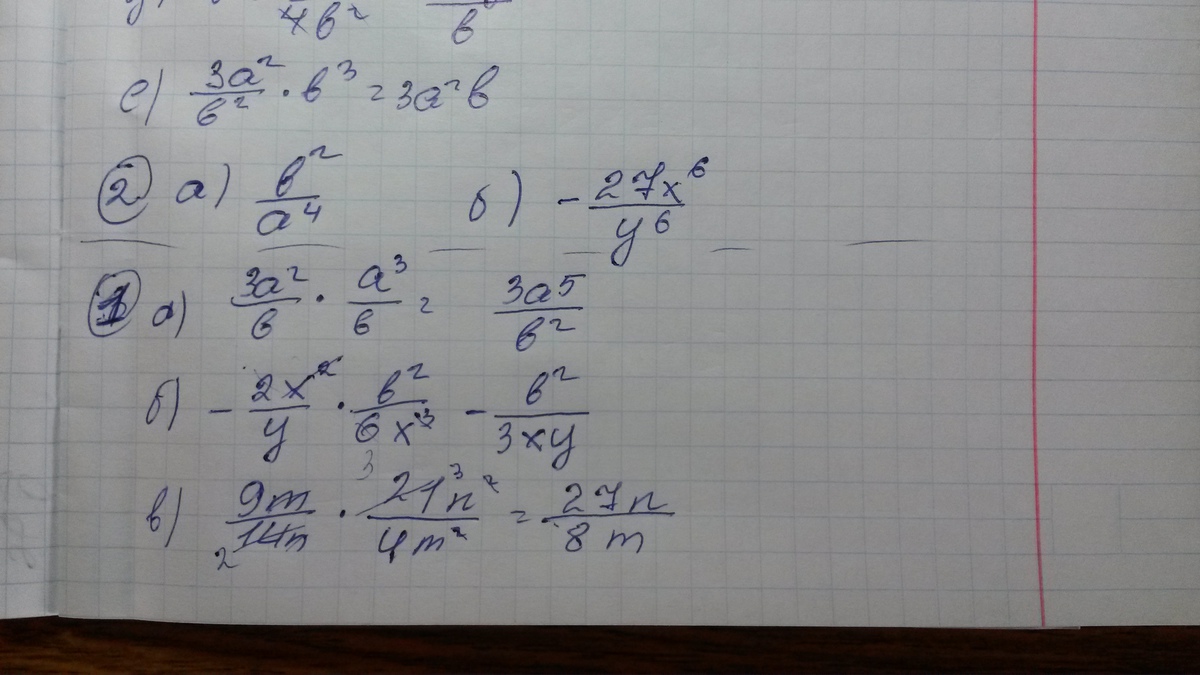 4b² b
е) 3a²/b² · b³ = 3a²b
② а) b²/a⁴ б) - 27x⁶/y⁶
① а) 3a²/b · a³/b = 3a⁵/b²
б) - 2x²/y · b²/6x³ - b²/3xy
3
в) 9m/14n · 21³n²/4m² = 27n/8m
2